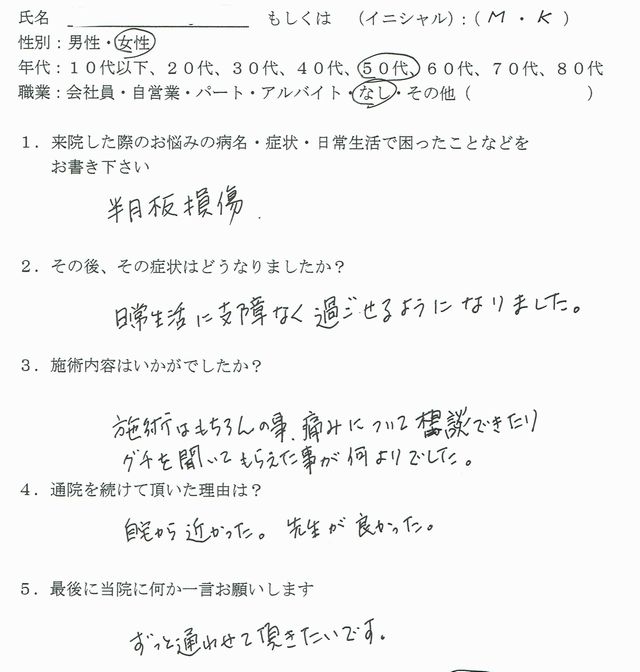 氏名 もしくは （イニシャル）：( M ・ K )
性別：男性・女性
年代：１０代以下、２０代、３０代、４０代、５０代、６０代、７０代、８０代
職業：会社員・自営業・パート・アルバイト・なし・その他（ ）
１．来院した際のお悩みの病名・症状・日常生活で困ったことなどを
お書き下さい
半月板損傷.
２．その後、その症状はどうなりましたか？
日常生活に支障なく過ごせるようになりました。
３．施術内容はいかがでしたか？
施術はもちろんの事、痛みについて相談できたり
グチを聞いてもらえた事が何よりでした。
４．通院を続けて頂いた理由は？
自宅から近かった。先生が良かった。
５．最後に当院に何か一言お願いします
ずっと通わせて頂きたいです。